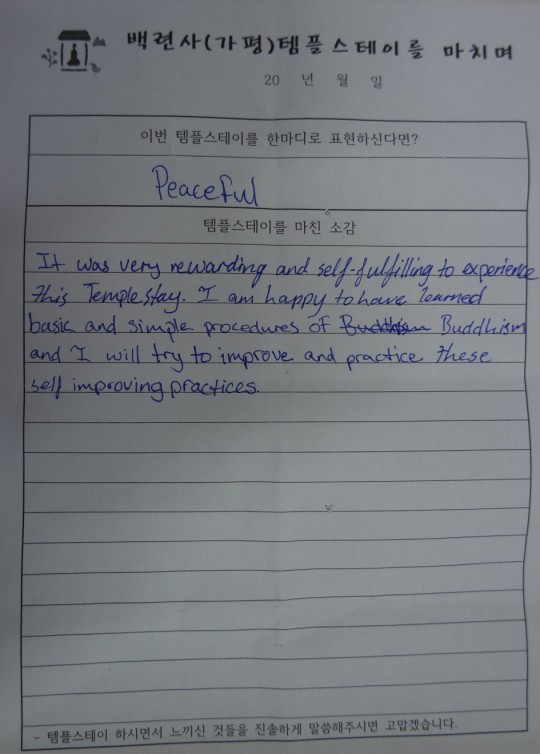 백련사(가평)템플스테이를 마치며
20 년 월 일
이번 템플스테이를 한마디로 표현하신다면?
Peaceful
템플스테이를 마친 소감
It was very rewarding and self-fulfilling to experience
this Temple stay. I am happy to have learned
basic and simple procedures of Buddhism Buddhism
and I will try to improve and practice these
self improving practices.
- 템플스테이 하시면서 느끼신 것들을 진솔하게 말씀해주시면 고맙겠습니다.